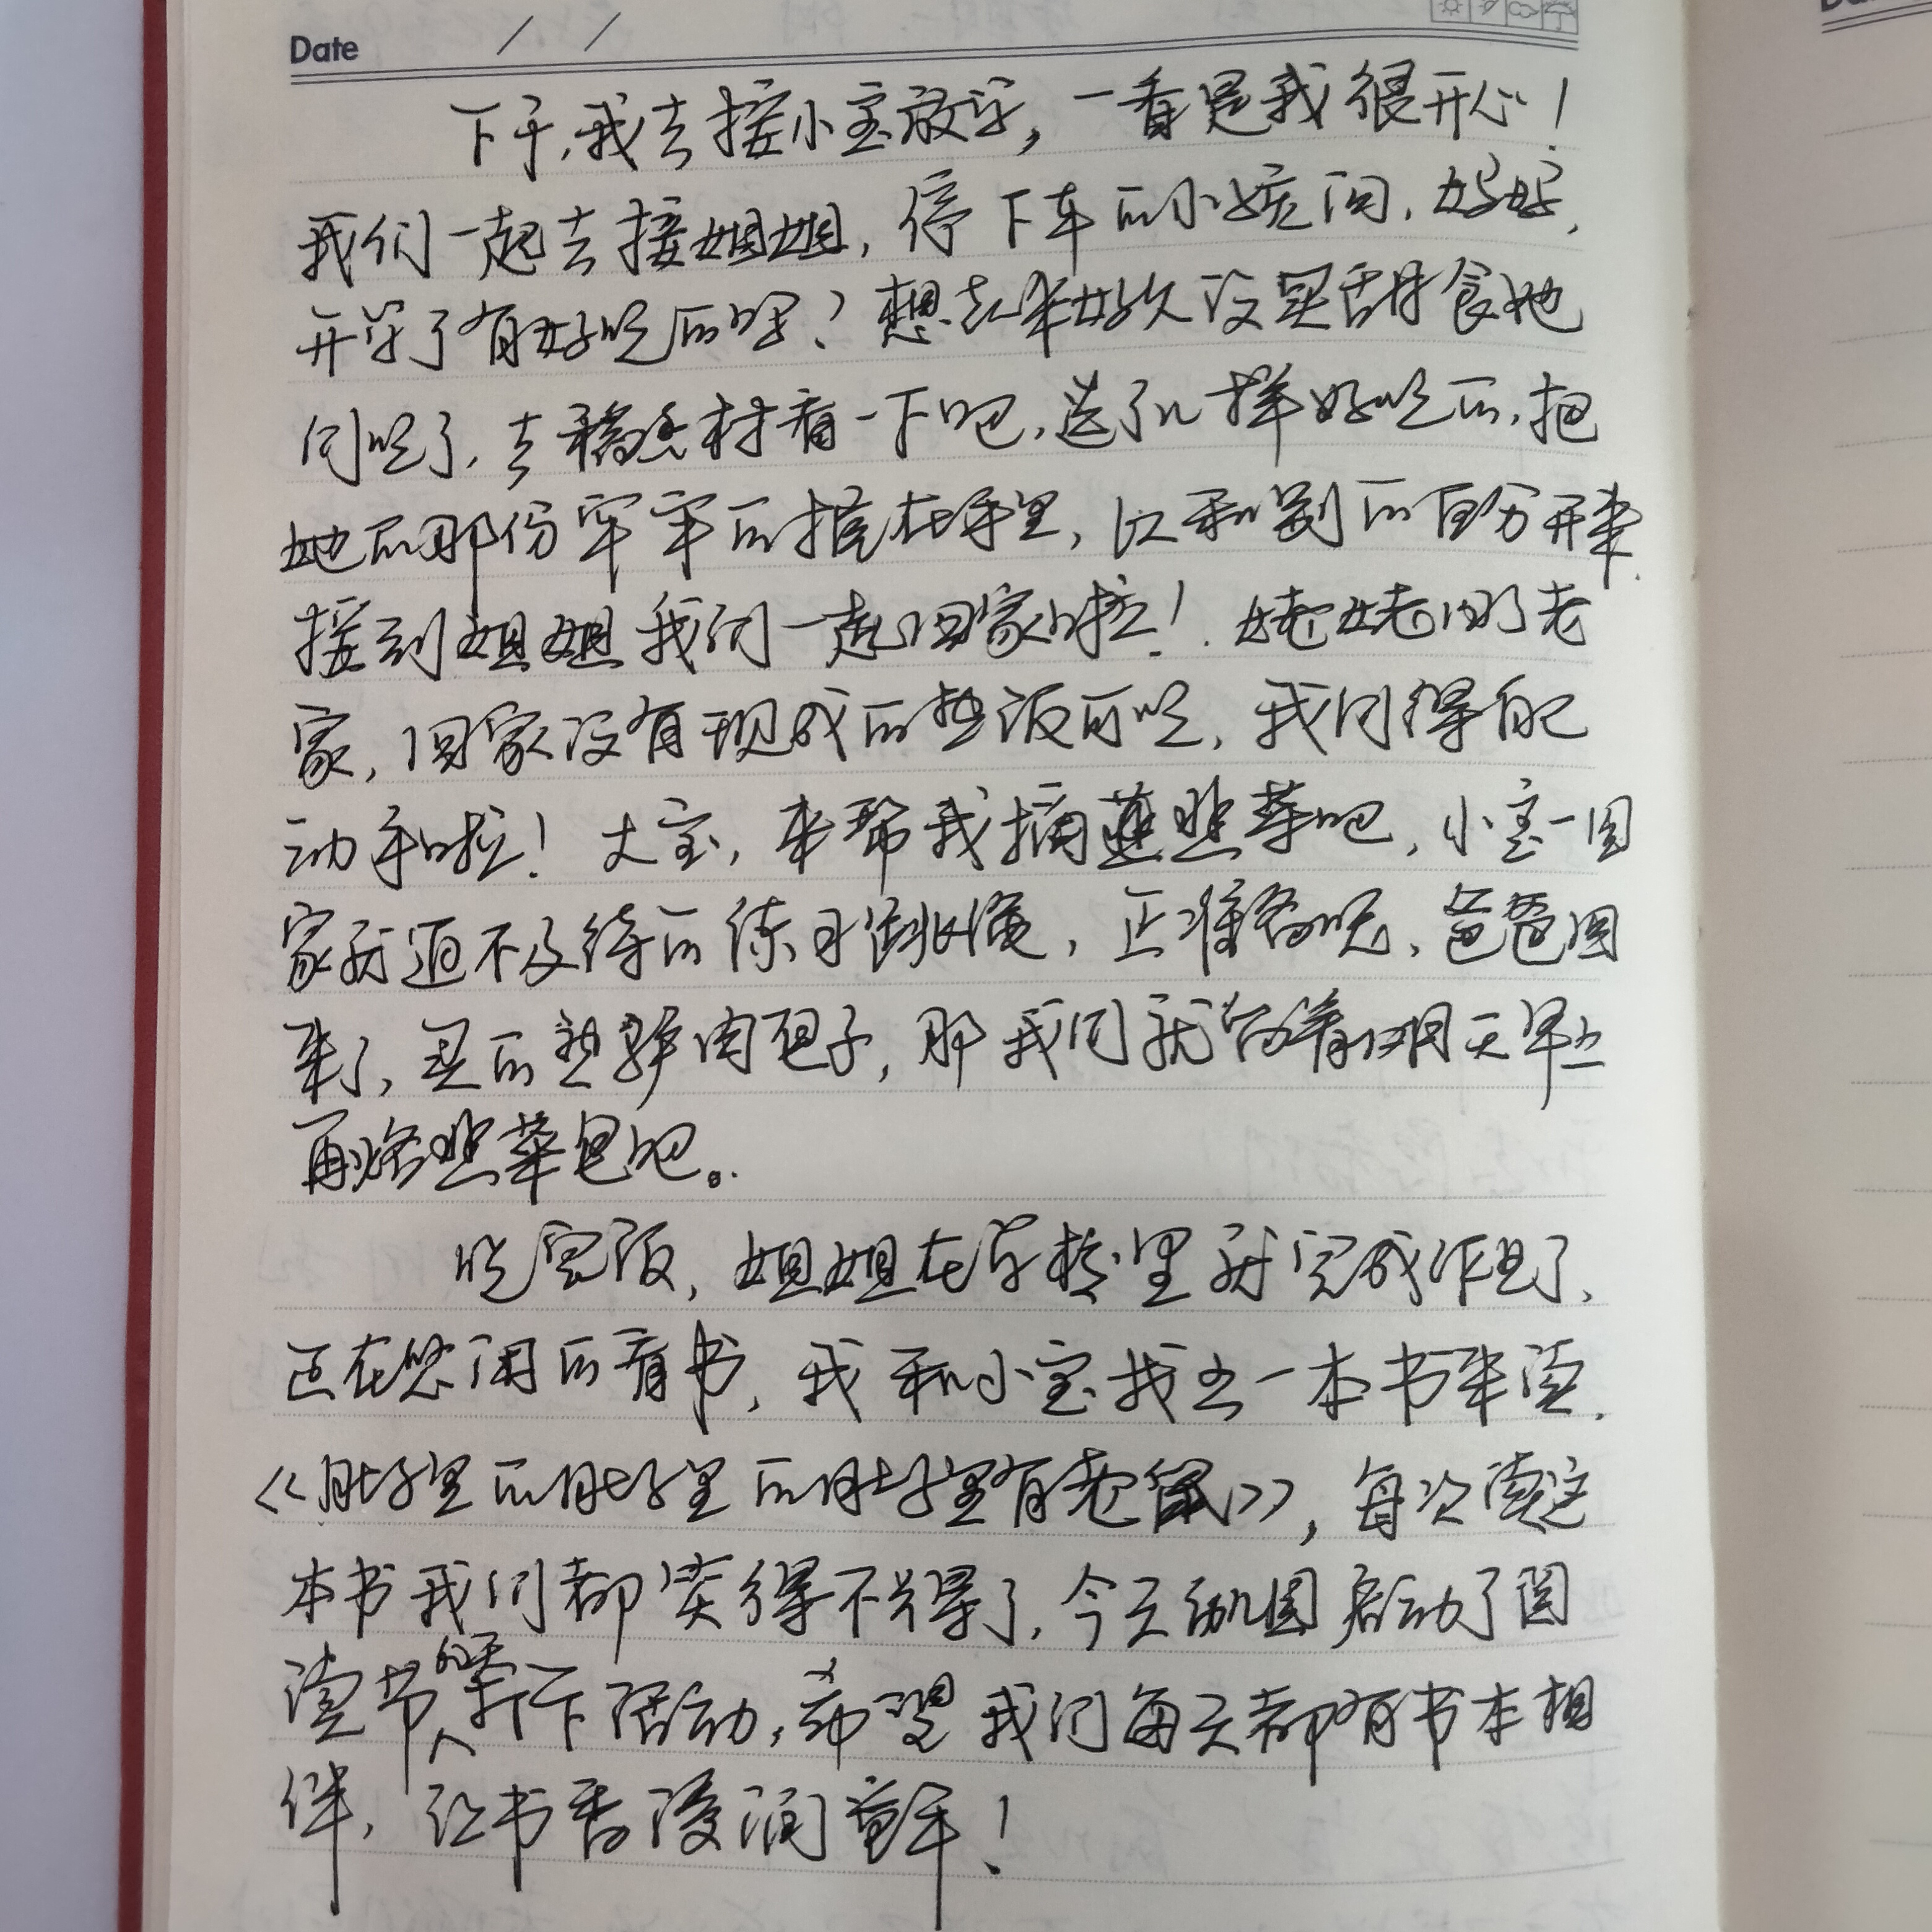 Date / /
下午，我去接小宝放学，一看是我很开心！
我们一起去接姐姐，停下车的小婉问，妈妈，
开学了有好吃的吗？想起来好久没买甜食她
们吃了，去稻香村看一下吧，选了几样好吃的，把
她的那份牢牢的握在手里，以和别的区分开来，
接到姐姐我们一起回家啦！姥姥回了老
家，回家没有现成的热饭可吃，我们得自己
动手啦！大宝，来帮我摘些菜吧，小宝一回
家就迫不及待的练习，正准备呢，爸爸回
来了，买的热驴肉包子，那我们就留着明天早上
再烙些菜包吧。
吃完饭，姐姐在学校里就完成作业了，
正在悠闲的看书，我和小宝找出一本书来读，
《肚子里的肚子里的肚子里有老鼠》，每次读这
本书我们都笑得不得了，今天幼儿园启动了阅
读节的线下活动，希望我们每天都有书本相
伴，让书香浸润童年！